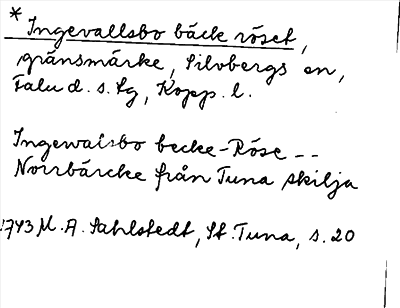 * Ingevallsbo bäck röset,
gränsmärke, Silvbergs sn,
Falu d. s. lg, Kopp. l.
Ingewalsbo becke-Röse --
Norrbärcke från Tuna skilja
1743 M. A. Sahlstedt, St. Tuna, s. 20